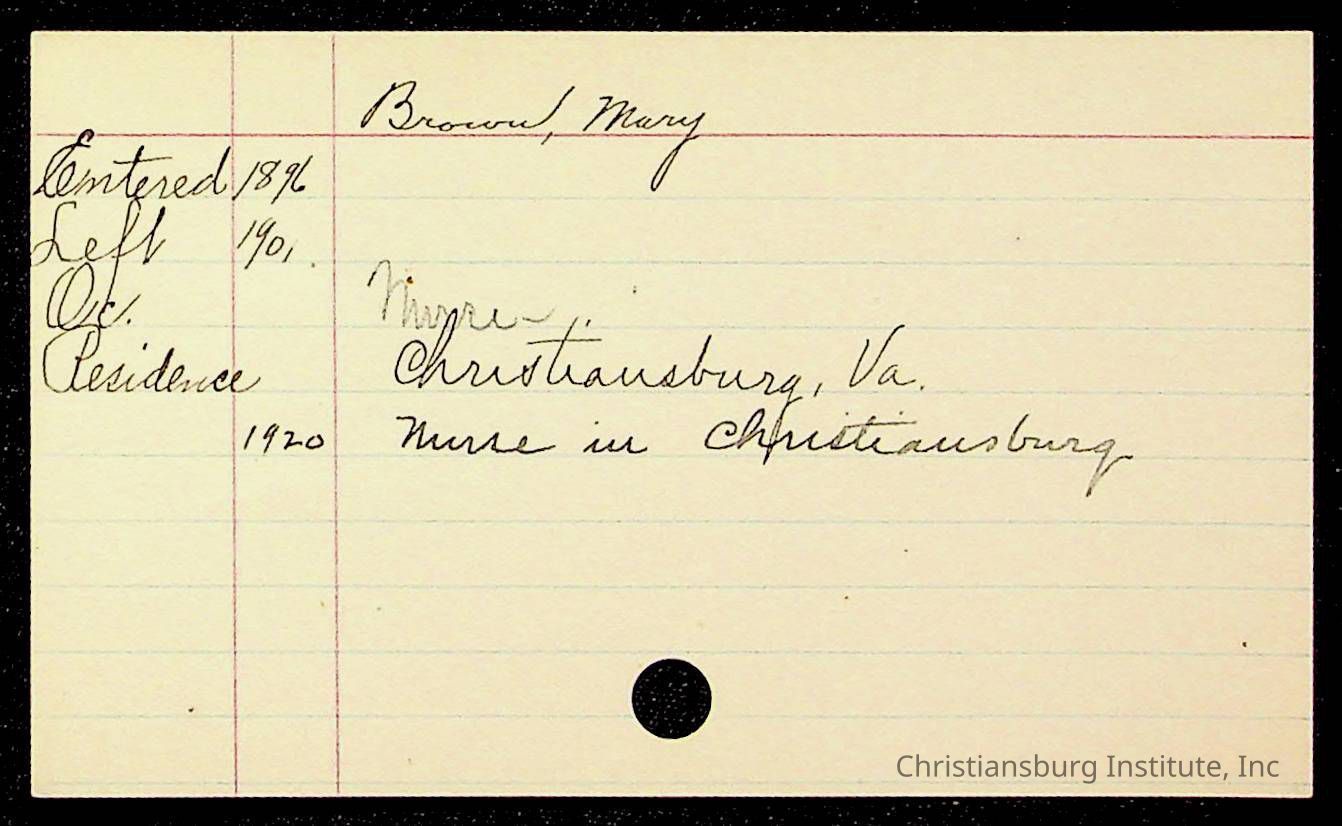 Brown, Mary
Entered 1896
Left 1901.
Oc. Nurse
Residence Christiansburg, Va.
1920 Nurse in Christiansburg
Christiansburg Institute, Inc